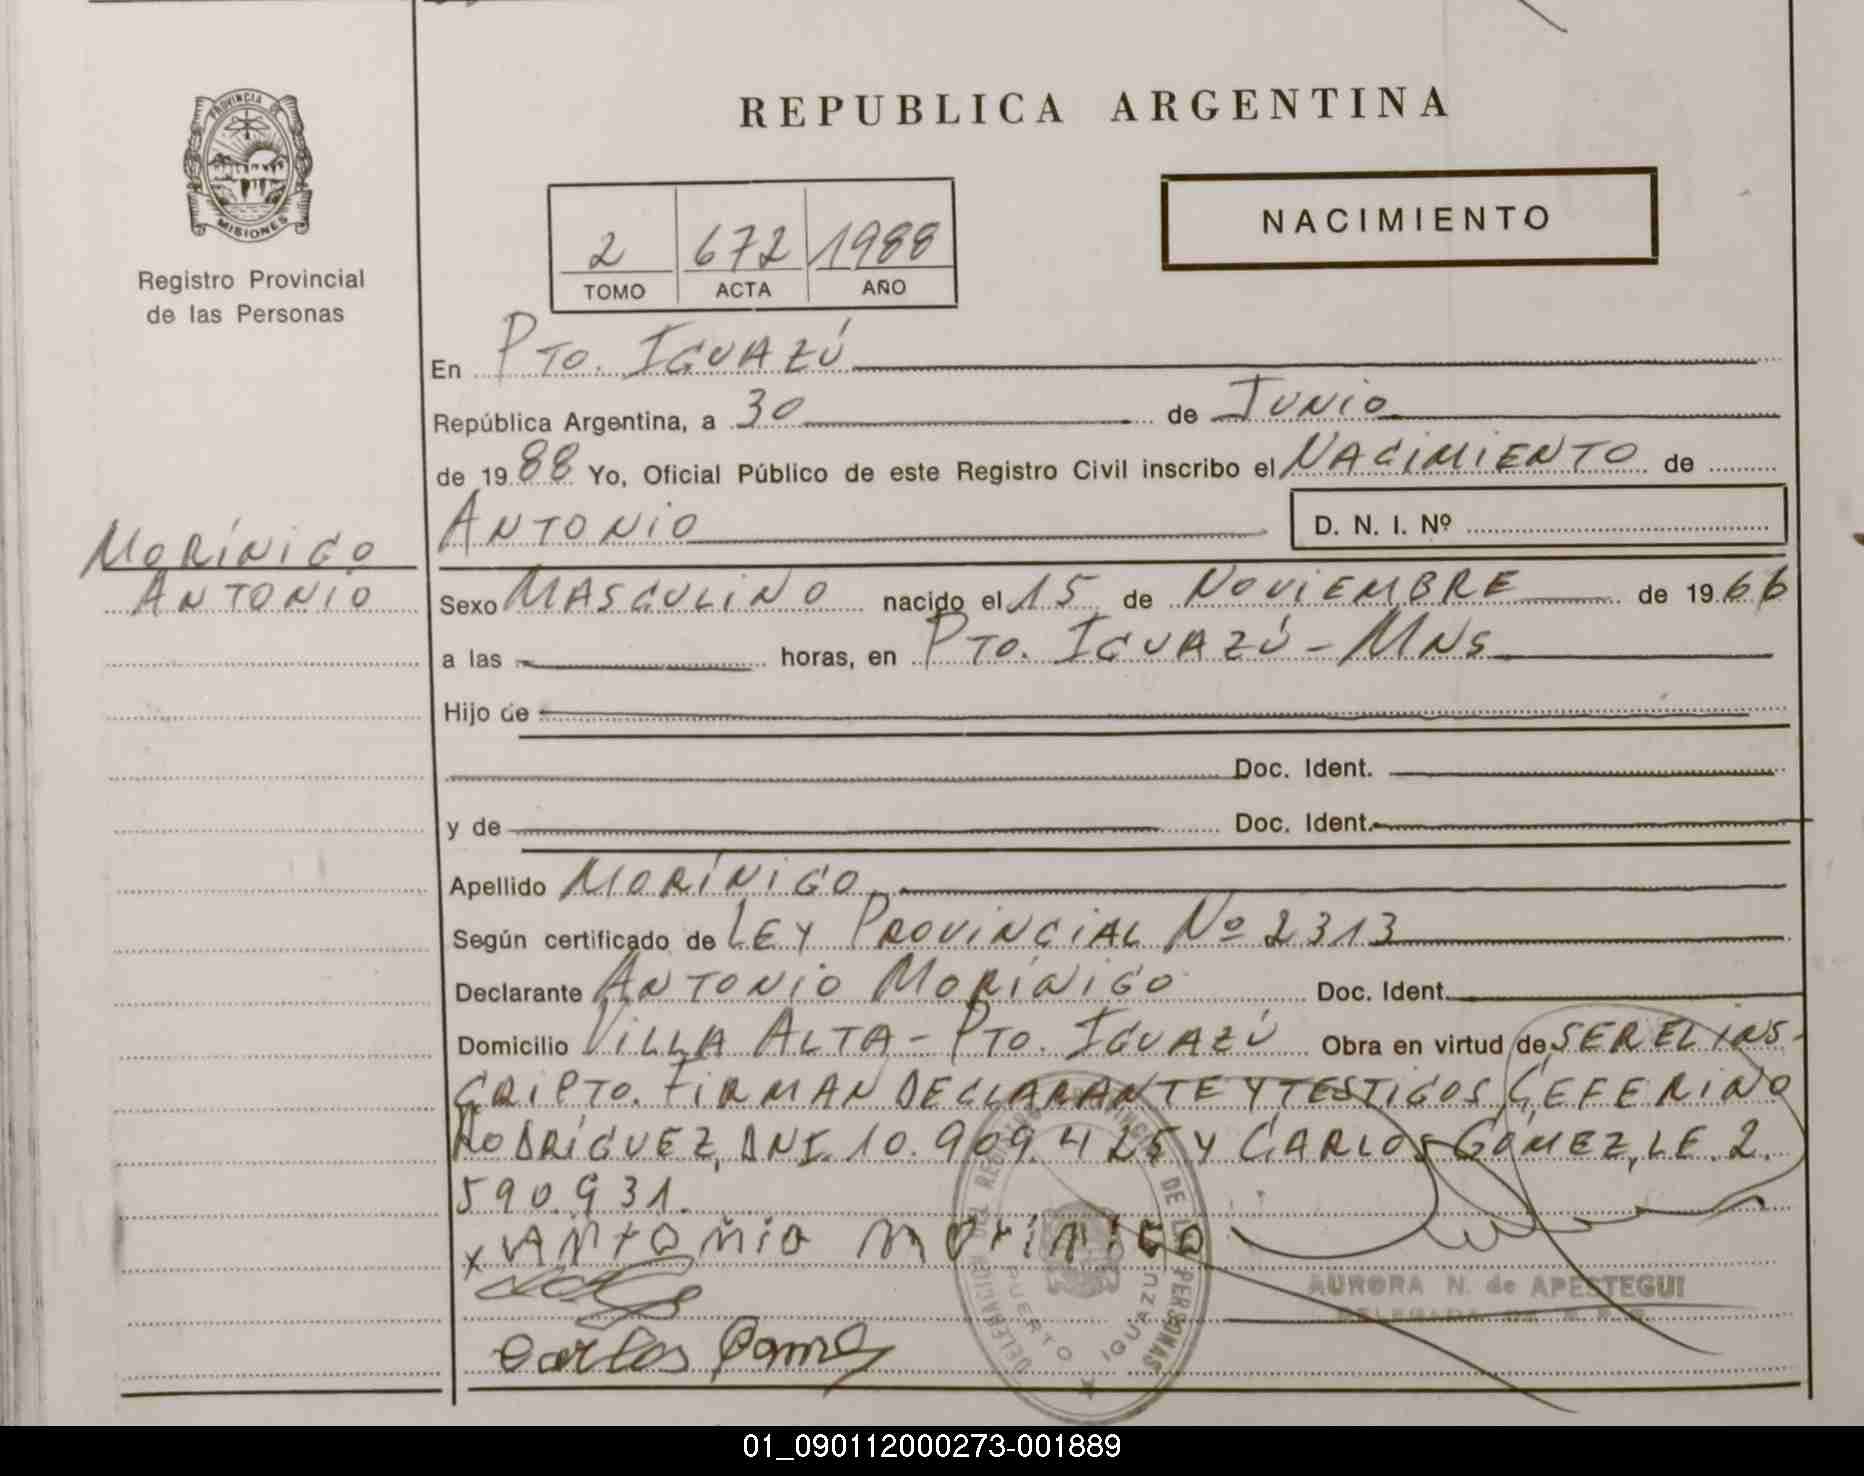 PROVINCIA
MISIONES
Registro Provincial
de las Personas
REPUBLICA ARGENTINA
NACIMIENTO
2 672 1988
TOMO ACTA AÑO
En PTO. IGUAZÚ
República Argentina, a 30 de JUNIO
de 19 88 Yo, Oficial Público de este Registro Civil inscribo el NACIMIENTO de
ANTONIO D. N. I. Nº
MORÍNIGO
ANTONIO
Sexo MASCULINO nacido el 15 de NOVIEMBRE de 19 66
a las horas, en PTO. IGUAZÚ - MNS
Hijo de
Doc. Ident.
y de Doc. Ident.
Apellido MORÍNIGO
Según certificado de LEY PROVINCIAL Nº 2313
Declarante ANTONIO MORÍNIGO Doc. Ident.
Domicilio VILLA ALTA - PTO. IGUAZÚ Obra en virtud de SER EL INS-
CRIPTO. FIRMAN DECLARANTE Y TESTIGOS, CEFERINO
RODRÍGUEZ, DNI. 10.909.425 Y CARLOS GÓMEZ, LE. 2.
590.931.
x Antonio morinigo
AURORA N. de APESTEGUI
Carlos Gomez
PUERTO IGUAZU
01_090112000273-001889